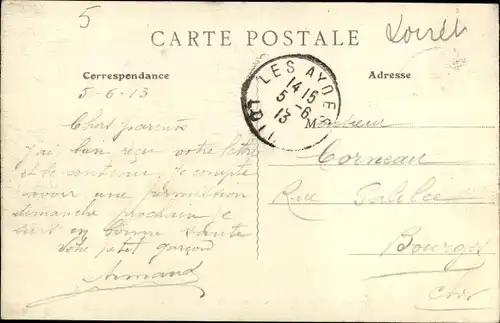 5
Loiret
CARTE POSTALE
Correspondance
Adresse
LES AYDES
14 15
5 -6
13
LOIRET
5-6-13
Chers parents
j'ai bien reçu votre lettre
et le contenu. Je compte
avoir une permission
dimanche prochain je
suis en bonne santé
Votre petit garçon
Armand
Monsieur
Corneau
Rue
Bourges
Cher